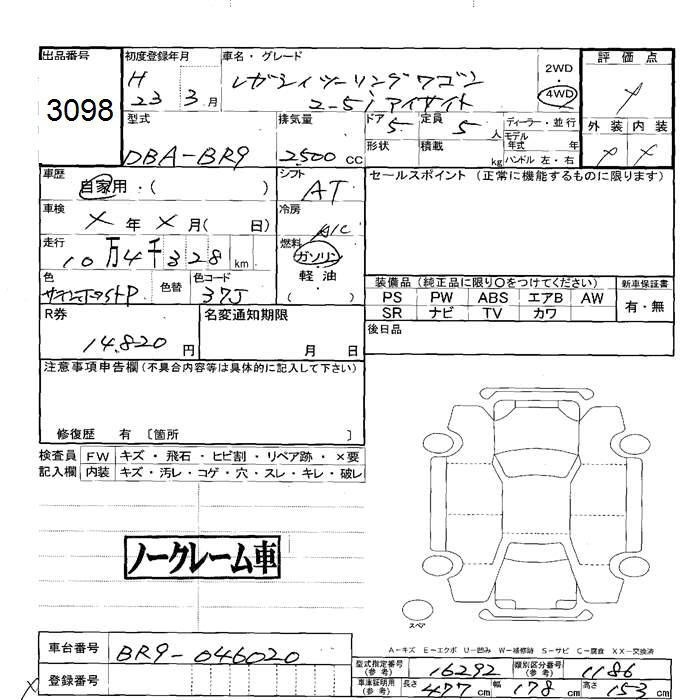 出品番号
3098
初度登録年月
H
23 3 月
車名・グレード
レガシィツーリングワゴン
2-5i アイサイト
2WD
・
4WD
評価点
外装 内装
型式
DBA-BR9
排気量
2500 cc
ドア 5
定員 5 人
形状
積載 kg
ディーラー・並行
モデル
年式 年
ハンドル 左・右
車歴
自家用・( )
シフト
AT
セールスポイント(正常に機能するものに限ります)
車検
× 年 × 月( 日)
冷房
A/C
走行
10万4千328 km
燃料
ガソリン
・
軽・油
( )
色
色替
色コード
37J
装備品(純正品に限り○をつけてください)
PS PW ABS エアB AW
SR ナビ TV カワ
新車保証書
有・無
R券
14.820 円
名変通知期限
月 日
後日品
注意事項申告欄(不具合内容等は具体的に記入して下さい)
修復歴 有 〔箇所 〕
検査員
記入欄
FW キズ・飛石・ヒビ割・リペア跡・×要
内装 キズ・汚レ・コゲ・穴・スレ・キレ・破レ
ノークレーム車
スペア
A-キズ E-エクボ U-凹み W-補修跡 S-サビ C-腐食 XX-交換済
車台番号
BR9-046020
登録番号
型式指定番号
(参考)
16292
類別区分番号
(参考)
1186
車庫証明用
(参考)
長さ 477 cm 幅 178 cm 高さ 153 cm